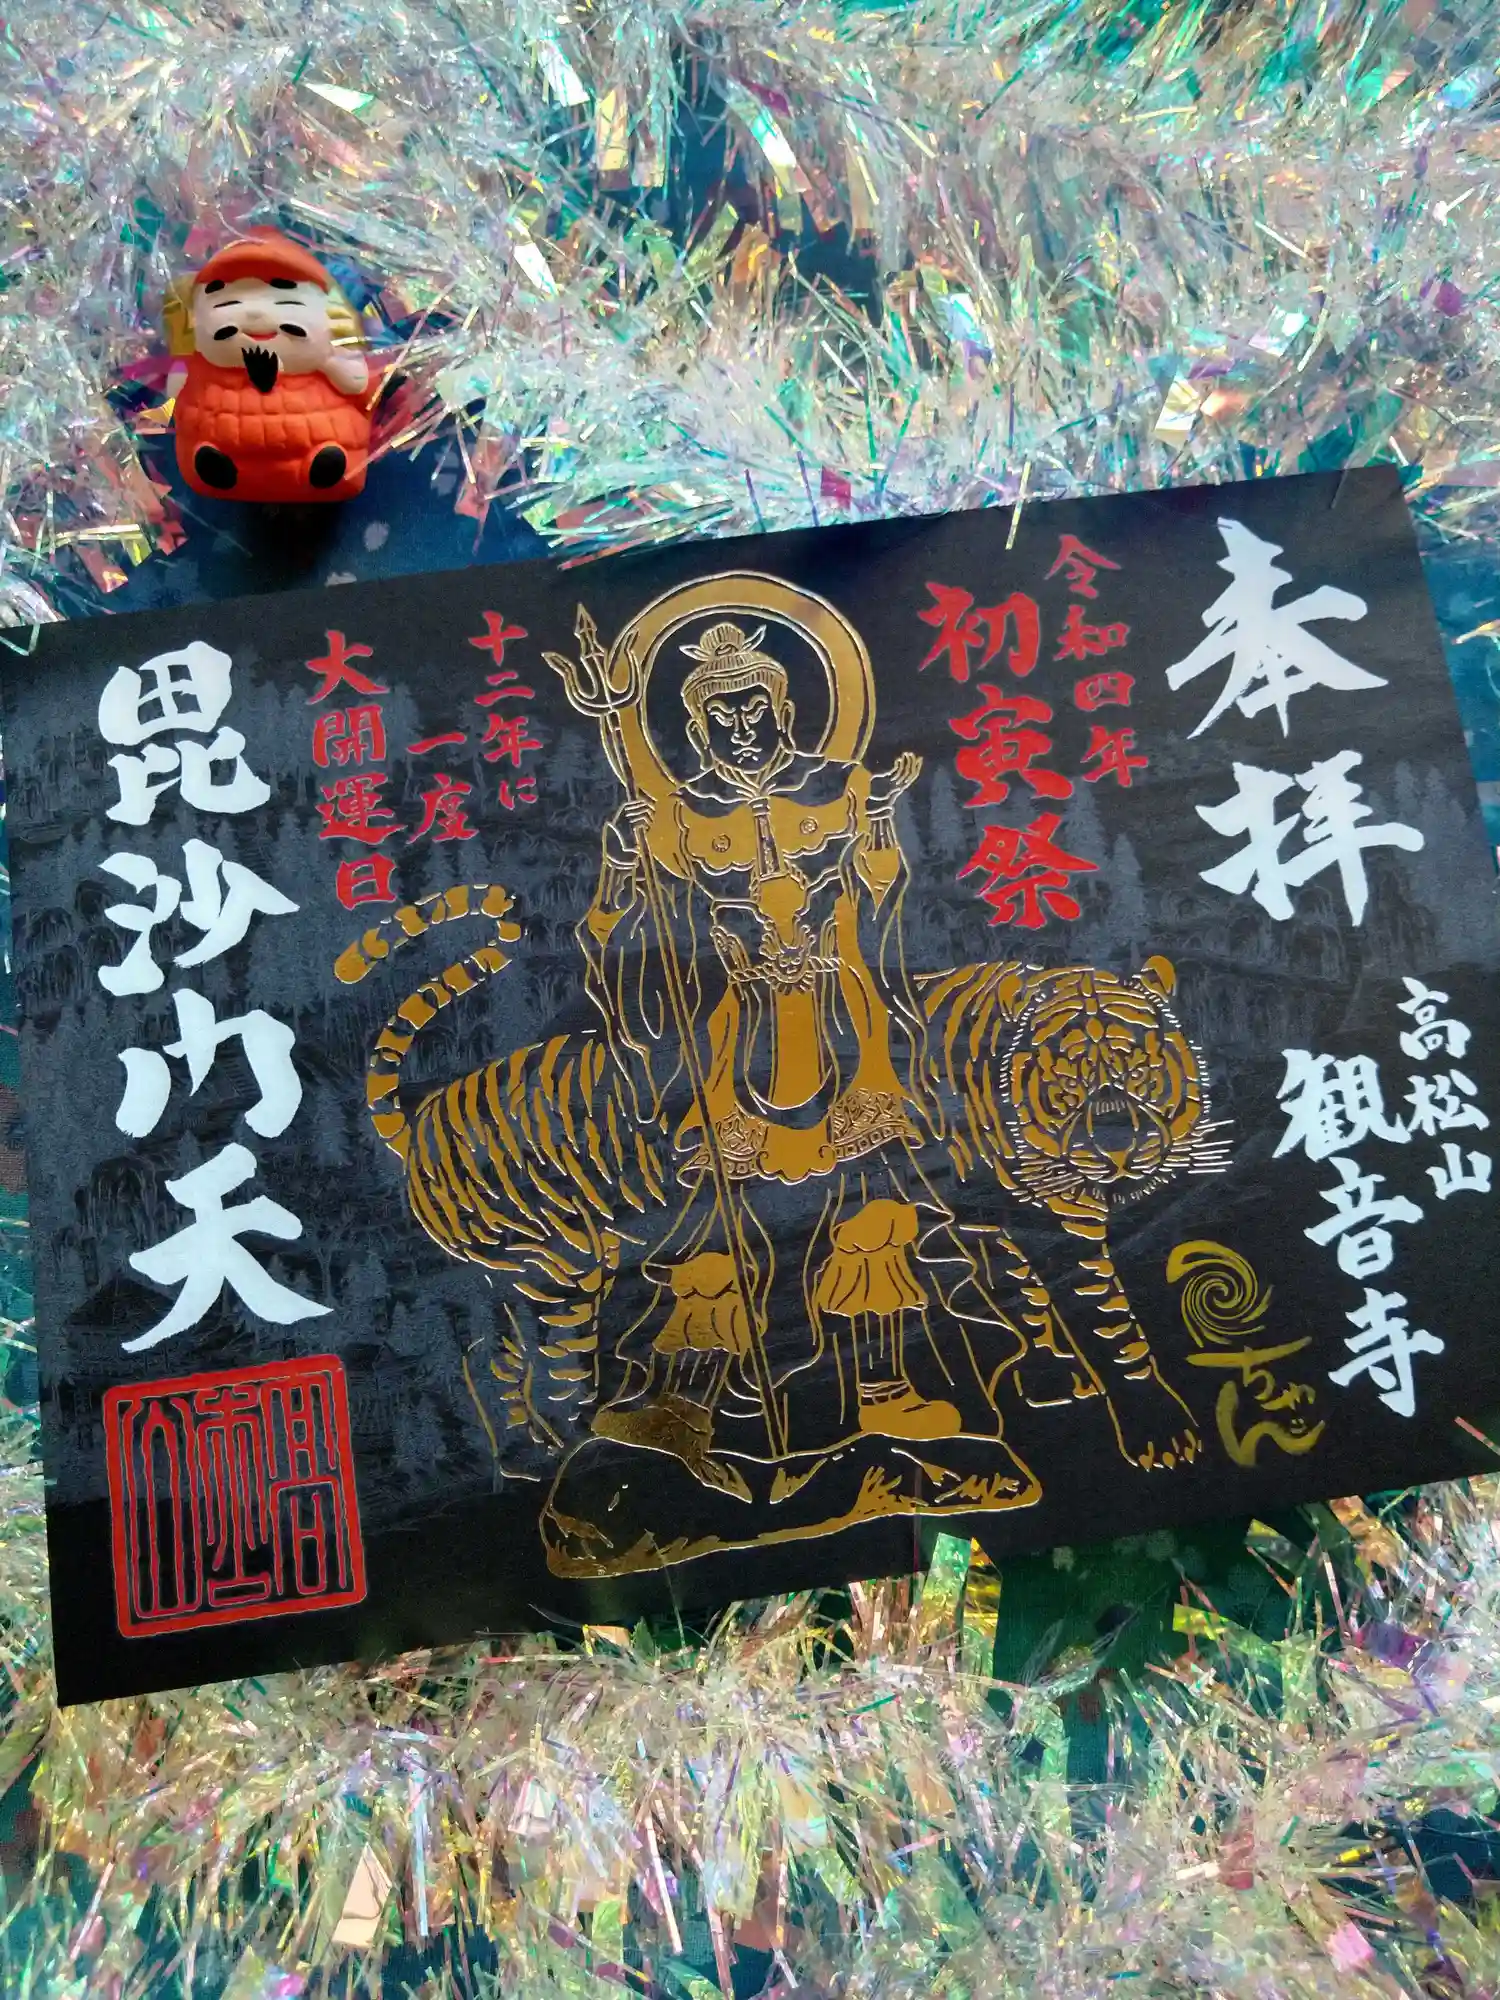 奉拝
高松山
観音寺
ちゃん
令和四年
初寅祭
十二年に
一度
大開運日
毘沙門天
高松山